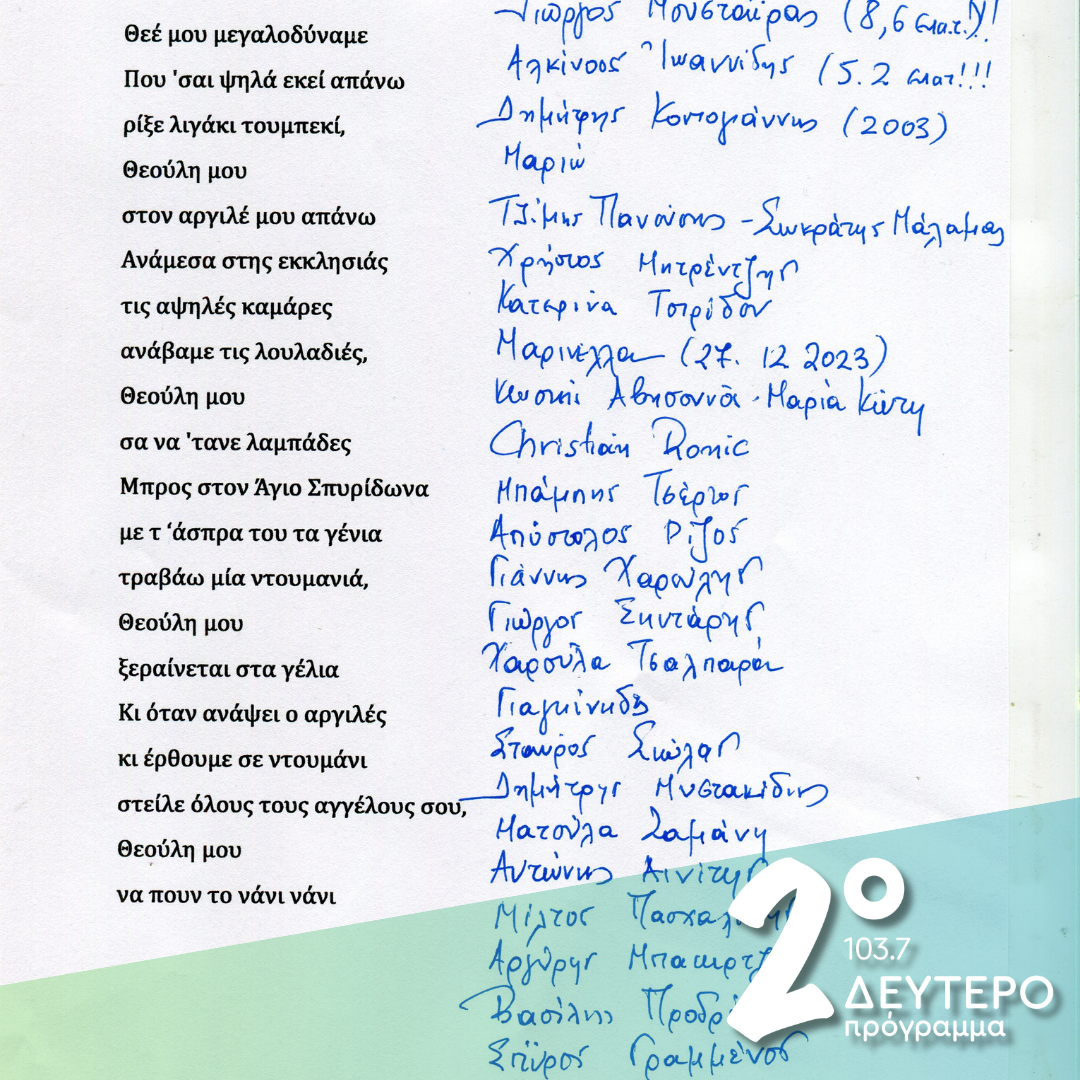 Θεέ μου μεγαλοδύναμε
Που 'σαι ψηλά εκεί απάνω
ρίξε λιγάκι τουμπεκί,
Θεούλη μου
στον αργιλέ μου απάνω
Ανάμεσα στης εκκλησιάς
τις αψηλές καμάρες
ανάβαμε τις λουλαδιές,
Θεούλη μου
σα να 'τανε λαμπάδες
Μπρος στον Άγιο Σπυρίδωνα
με τ ‘άσπρα του τα γένια
τραβάω μία ντουμανιά,
Θεούλη μου
ξεραίνεται στα γέλια
Κι όταν ανάψει ο αργιλές
κι έρθουμε σε ντουμάνι
στείλε όλους τους αγγέλους σου,
Θεούλη μου
να πουν το νάνι νάνι
Γιώργος (8,6 εκατ.)!!
Αλκίνοος Ιωαννίδης (5.2 εκατ!!!
Δημήτρης Κοντογιάννης (2003)
Μαριώ
Τζίμης Πανούσης - Σωκράτης Μάλαμας
Χρήστος Μητρέντζης
Κατερίνα Τσιρίδου
Μαρινέλλα (27. 12 2023)
Κωστής Αβησσυνός - Μαρία Κώτη
Christian Ronic
Μπάμπης Τσέρτος
Απόστολος Ρίζος
Γιάννης Χαρούλης
Γιώργος Ξηντάρης
Χαρούλα Τσαλπαρά
Γιαγκίνηδες
Σταύρος
Δημήτρης Μυστακίδης
Ματούλα Ζαμάνη
Αντώνης Αινίτης
Μίλτος
Αργύρης
Βασίλης
Σπύρος Γραμμένος
2ο
103.7
ΔΕΥΤΕΡΟ
πρόγραμμα